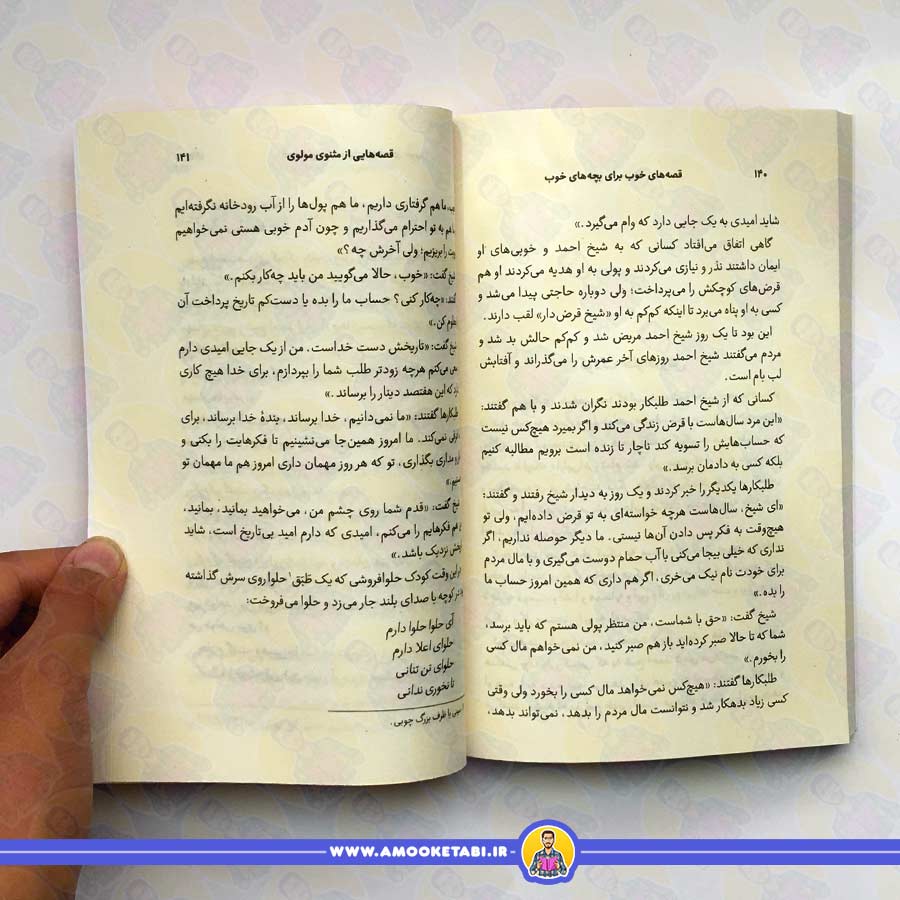 ۱۴۰
قصه‌های خوب برای بچه‌های خوب
شاید امیدی به یک جایی دارد که وام می‌گیرد.»
گاهی اتفاق می‌افتاد کسانی که به شیخ احمد و خوبی‌های او
ایمان داشتند نذر و نیازی می‌کردند و پولی به او هدیه می‌کردند او هم
قرض‌های کوچکش را می‌پرداخت؛ ولی دوباره حاجتی پیدا می‌شد و
کسی به او پناه می‌برد تا اینکه کم‌کم به او «شیخ قرض‌دار» لقب دارند.
این بود تا یک روز شیخ احمد مریض شد و کم‌کم حالش بد شد و
مردم می‌گفتند شیخ احمد روزهای آخر عمرش را می‌گذراند و آفتابش
لب بام است.
کسانی که از شیخ احمد طلبکار بودند نگران شدند و با هم گفتند:
«این مرد سال‌هاست با قرض زندگی می‌کند و اگر بمیرد هیچ‌کس نیست
که حساب‌هایش را تسویه کند ناچار تا زنده است برویم مطالبه کنیم
بلکه کسی به دادمان برسد.»
طلبکارها یکدیگر را خبر کردند و یک روز به دیدار شیخ رفتند و گفتند:
«ای شیخ، سال‌هاست هرچه خواسته‌ای به تو قرض داده‌ایم، ولی تو
هیچ‌وقت به فکر پس دادن آن‌ها نیستی. ما دیگر حوصله نداریم، اگر
نداری که خیلی بیجا می‌کنی با آب حمام دوست می‌گیری و با مال مردم
برای خودت نام نیک می‌خری، اگر هم داری که همین امروز حساب ما
را بده.»
شیخ گفت: «حق با شماست، من منتظر پولی هستم که باید برسد،
شما که تا حالا صبر کرده‌اید باز هم صبر کنید، من نمی‌خواهم مال کسی
را بخورم.»
طلبکارها گفتند: «هیچ‌کس نمی‌خواهد مال کسی را بخورد ولی وقتی
کسی زیاد بدهکار شد و نتوانست مال مردم را بدهد، نمی‌تواند بدهد،
قصه‌هایی از مثنوی مولوی
۱۴۱
ما هم گرفتاری داریم، ما هم پول‌ها را از آب رودخانه نگرفته‌ایم
به تو احترام می‌گذاریم و چون آدم خوبی هستی نمی‌خواهیم
را بریزیم؛ ولی آخرش چه؟»
گفت: «خوب، حالا می‌گویید من باید چه‌کار بکنم.»
«چه‌کار کنی؟ حساب ما را بده یا دست‌کم تاریخ پرداخت آن
کن.»
گفت: «تاریخش دست خداست. من از یک جایی امیدی دارم
می‌کنم هرچه زودتر طلب شما را بپردازم، برای خدا هیچ کاری
که این هفتصد دینار را برساند.»
طلبکارها گفتند: «ما نمی‌دانیم، خدا برساند، بندهٔ خدا برساند، برای
نمی‌کند. ما امروز همین‌جا می‌نشینیم تا فکرهایت را بکنی و
بگذاری، تو که هر روز مهمان داری امروز هم ما مهمان تو
شیخ گفت: «قدم شما روی چشم من، می‌خواهید بمانید، بمانید،
هم فکرهایم را می‌کنم، امیدی که دارم امید بی‌تاریخ است، شاید
نزدیک باشد.»
این وقت کودک حلوافروشی که یک طَبَق۱ حلوا روی سرش گذاشته
کوچه با صدای بلند جار می‌زد و حلوا می‌فروخت:
آی حلوا حلوا دارم
حلوای اعلا دارم
حلوای تن تنانی
تا نخوری ندانی
سینی یا ظرف بزرگ چوبی.
WWW.AMOOKETABI.IR